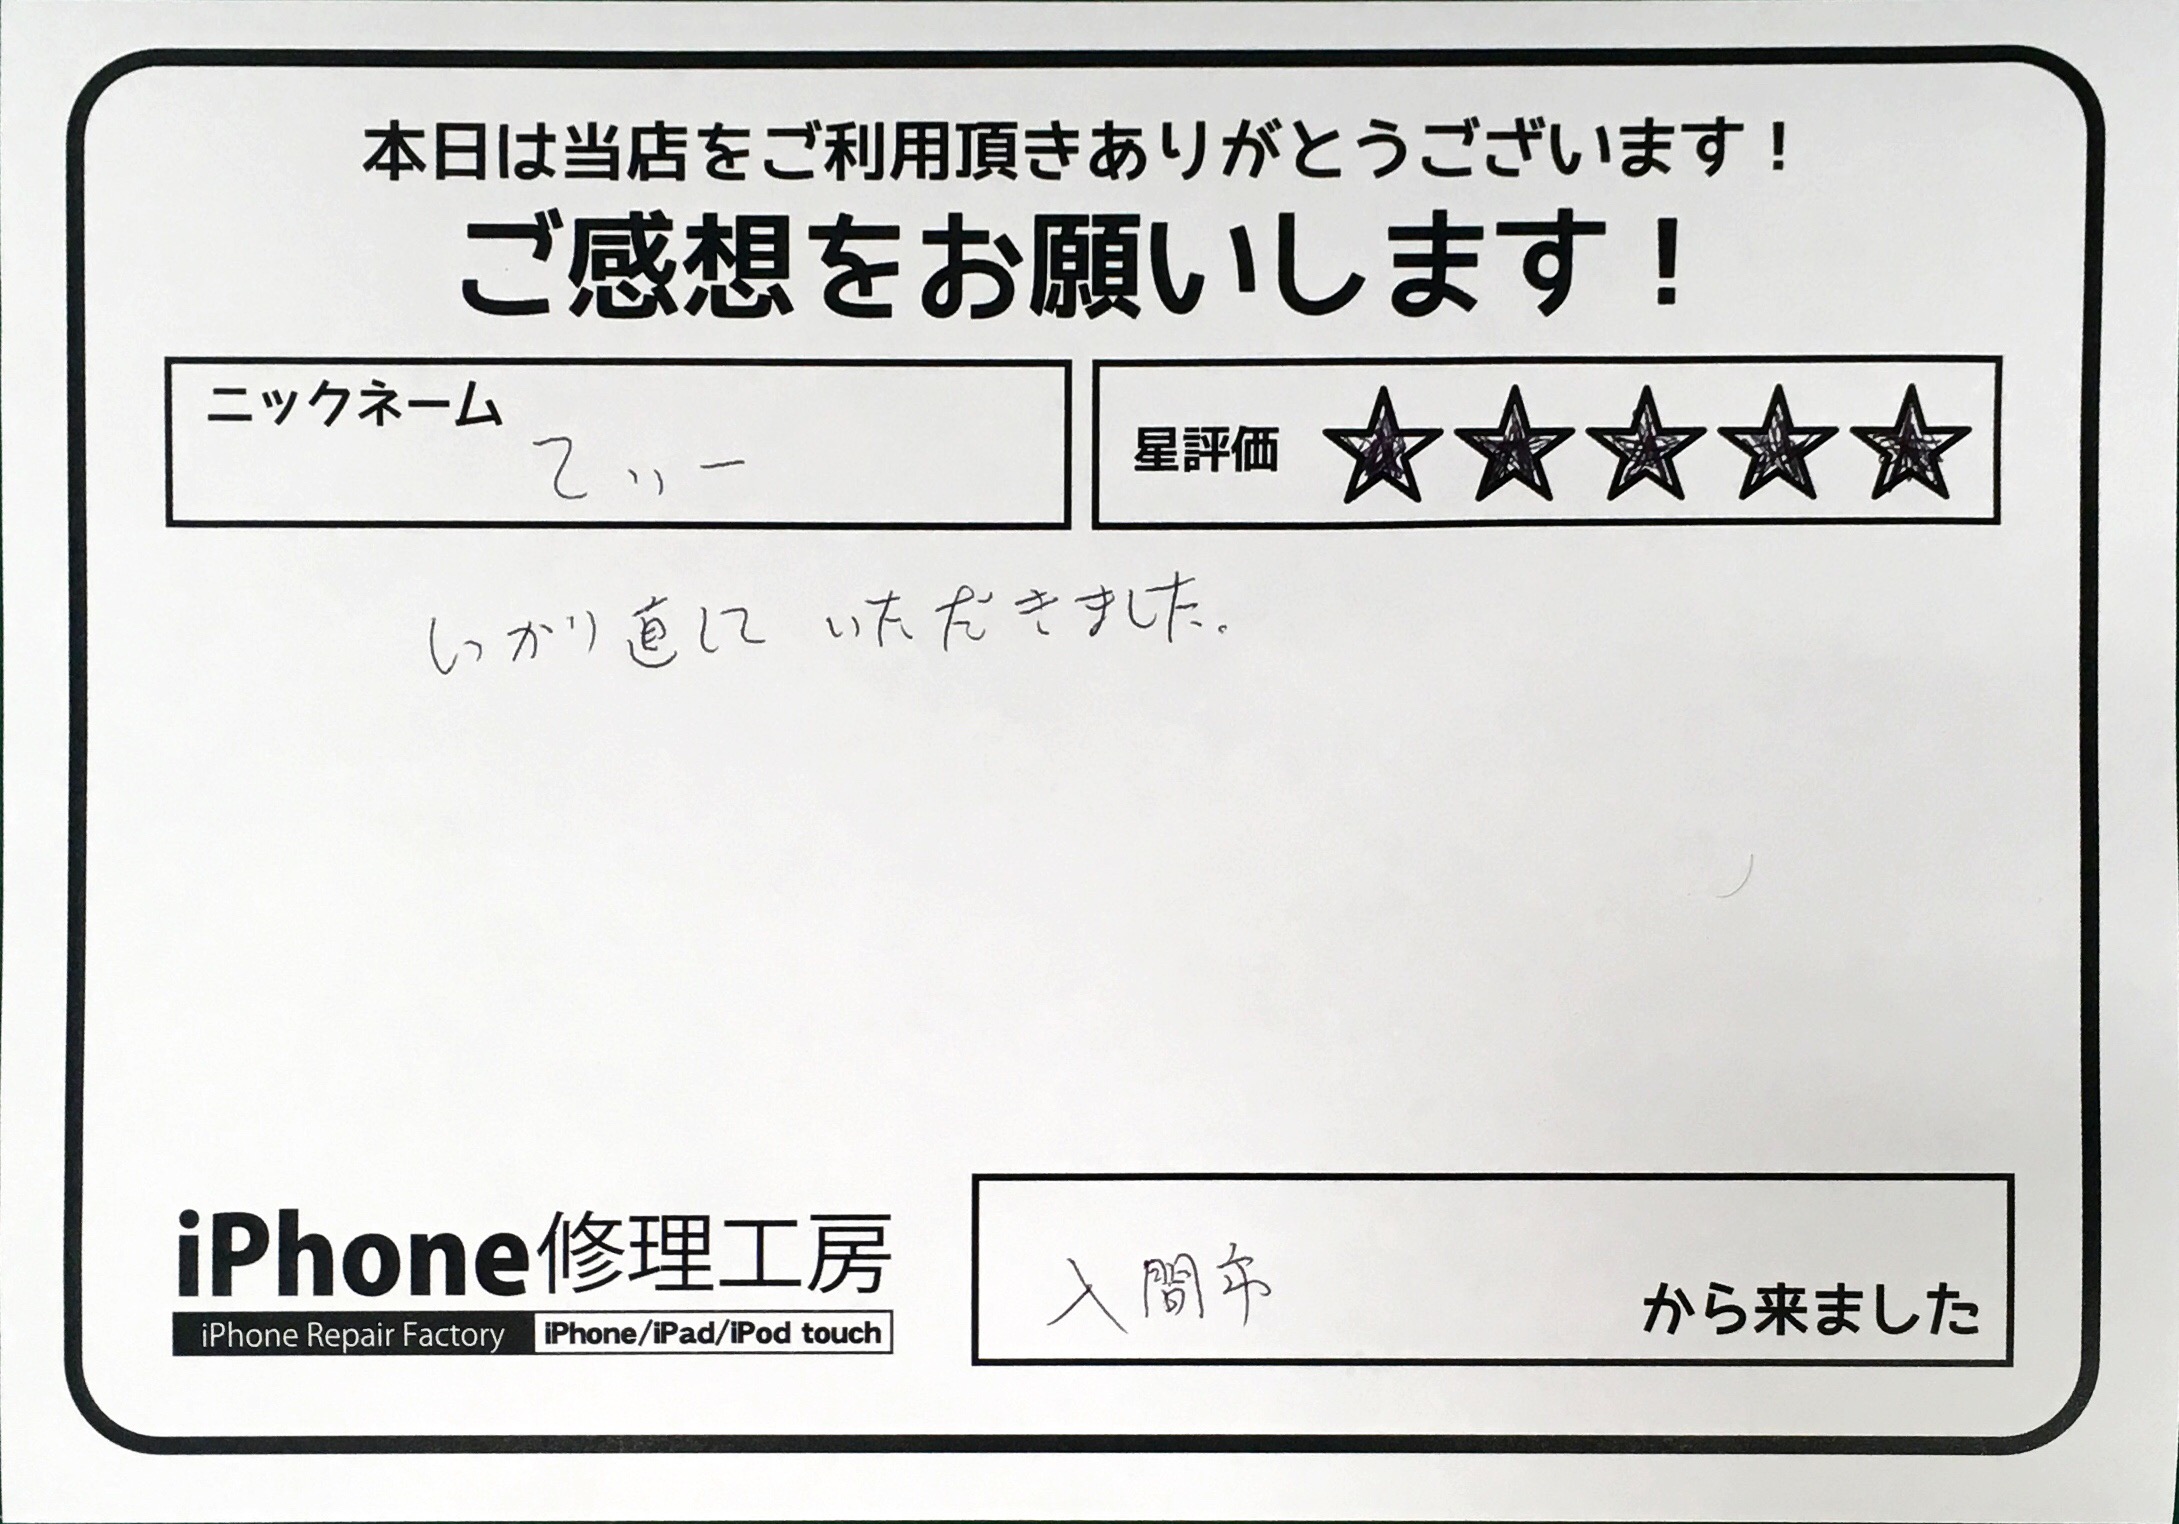 本日は当店をご利用頂きありがとうございます！
ご感想をお願いします！
ニックネーム
てぃー
星評価 ★★★★★
しっかり直して いただきました。
iPhone修理工房
iPhone Repair Factory iPhone/iPad/iPod touch
入間市 から来ました